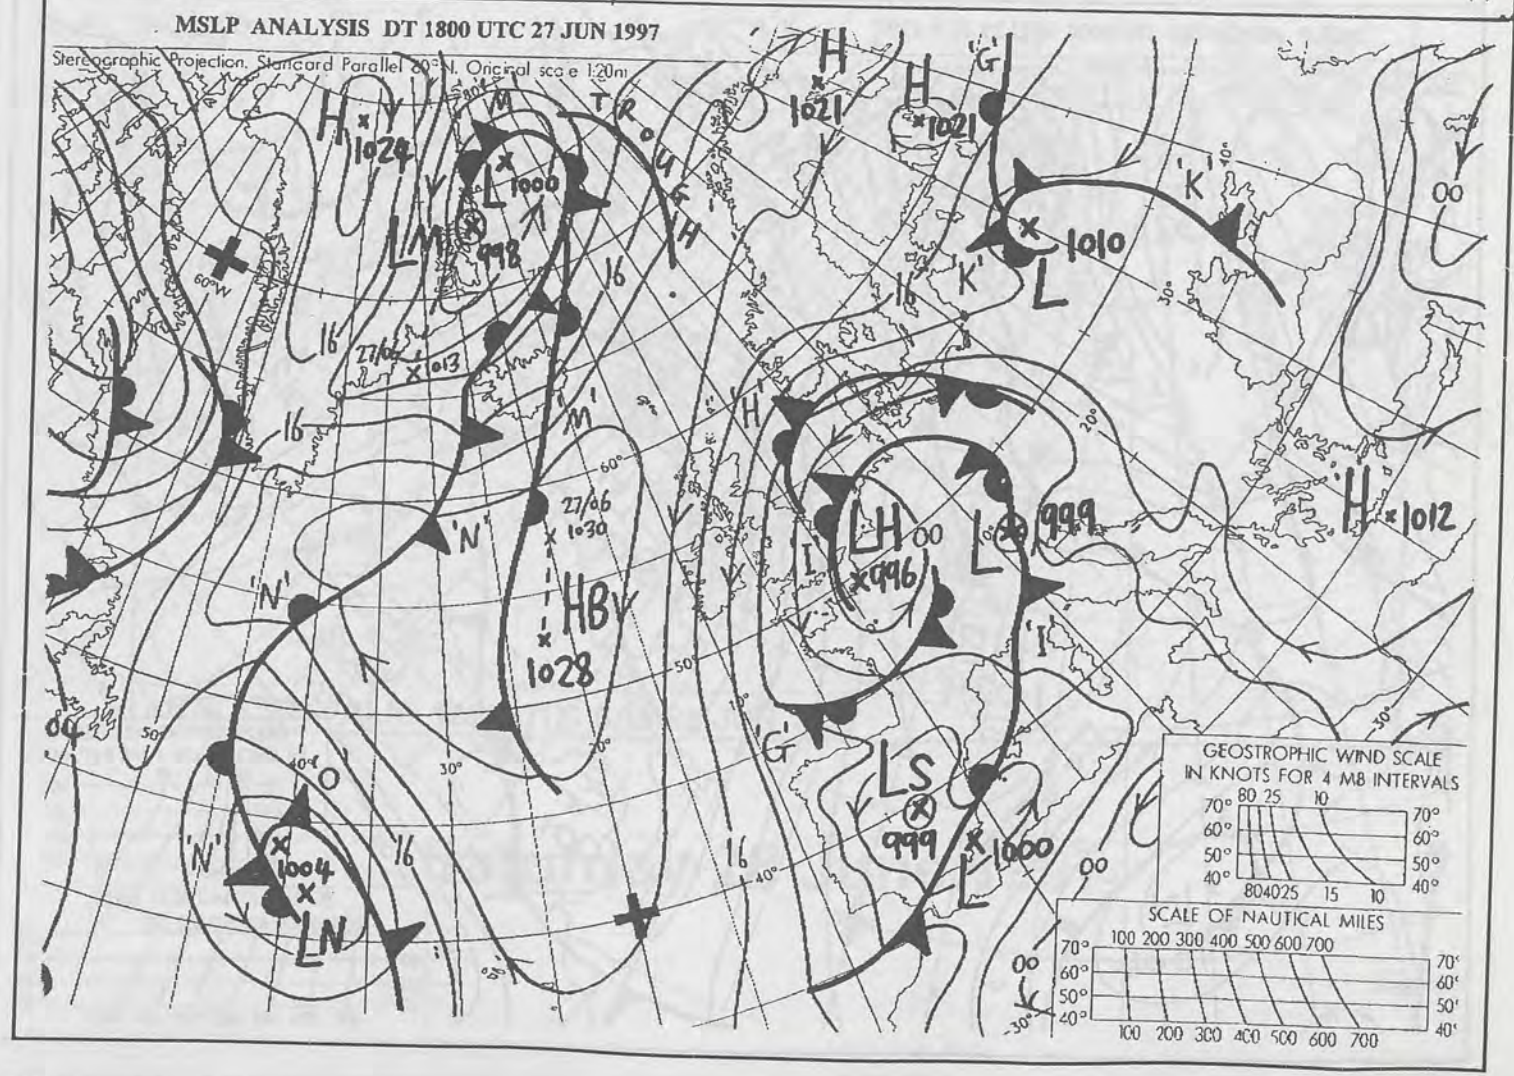 MSLP ANALYSIS DT 1800 UTC 27 JUN 1997
Stereographic Projection. Standard Parallel 60°N. Original scale 1:20m
H
1024
M
80°
T
R
O
U
G
H
L
1000
LM
998
H
1021
H
1021
'G'
'K'
40°
00
1010
L
'K'
30°
60°W
16
16
16
27/06
1013
16
'M'
'H'
20°
60°
27/06
1030
'N'
'N'
HB
1028
LH
00
996
'I'
L
999
H
1012
50°
'I'
50°
'G'
40°
'O'
30°
LS
999
L
1000
'N'
1004
LN
16
16
40°
00
00
30°
30°
GEOSTROPHIC WIND SCALE
IN KNOTS FOR 4 MB INTERVALS
80 25 10
70° 70°
60° 60°
50° 50°
40° 40°
80 40 25 15 10
SCALE OF NAUTICAL MILES
100 200 300 400 500 600 700
70° 70°
60° 60°
50° 50°
40° 40°
100 200 300 400 500 600 700